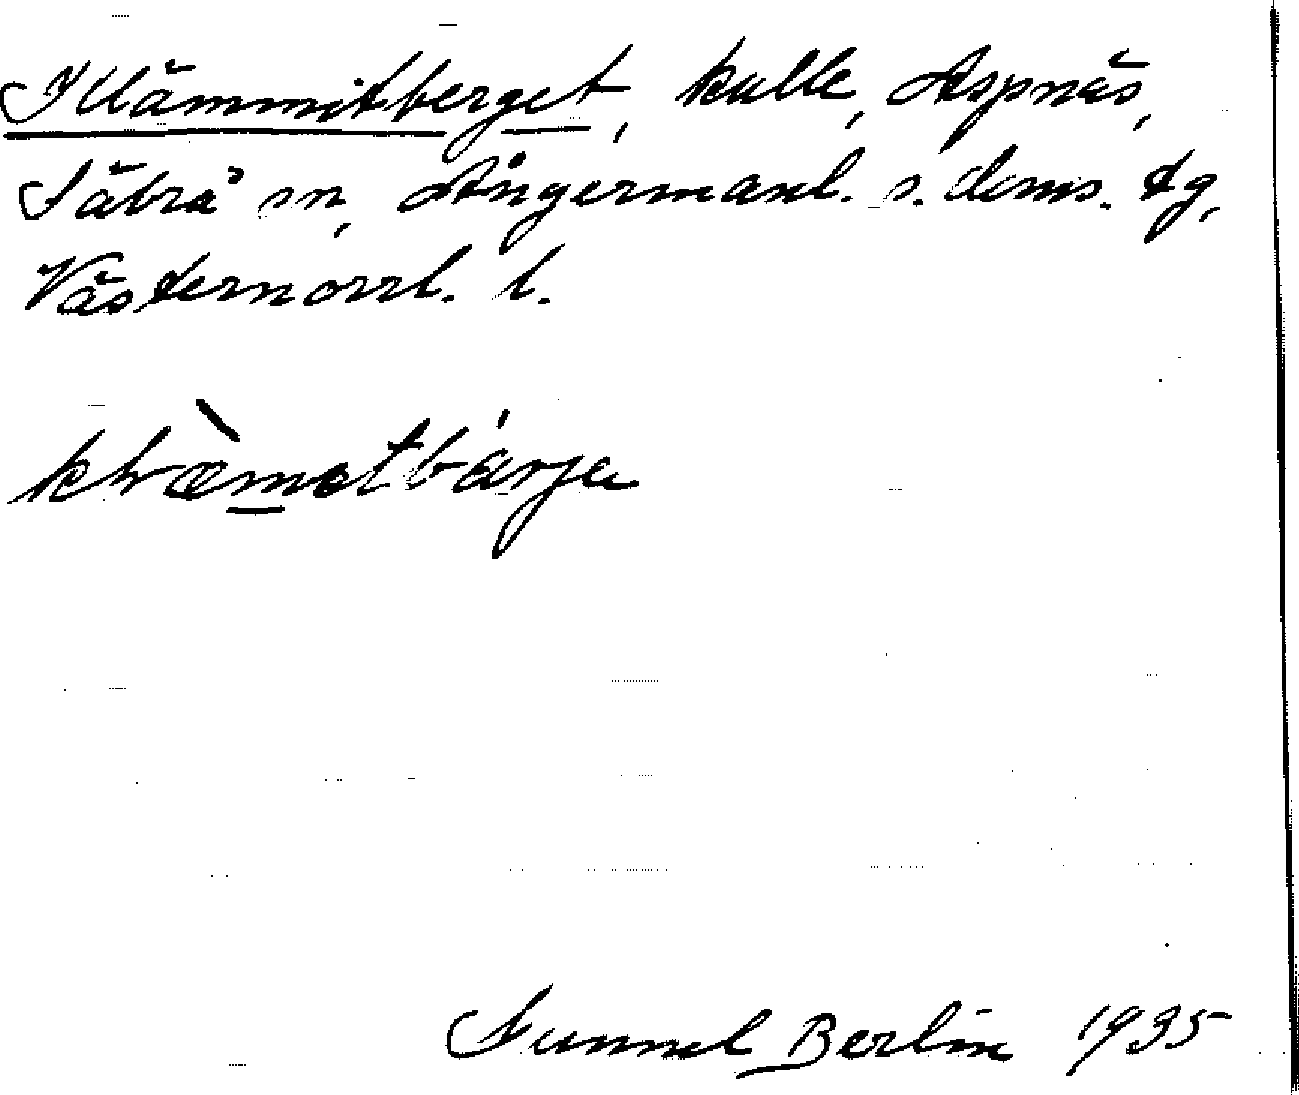 Klämmitberget, kulle, Aspnäs,
Säbrå sn, Ångermanl. s. doms. tg,
Västernorrl. l.
klæ̀mətbárjə
Gunnel Berlin 1935